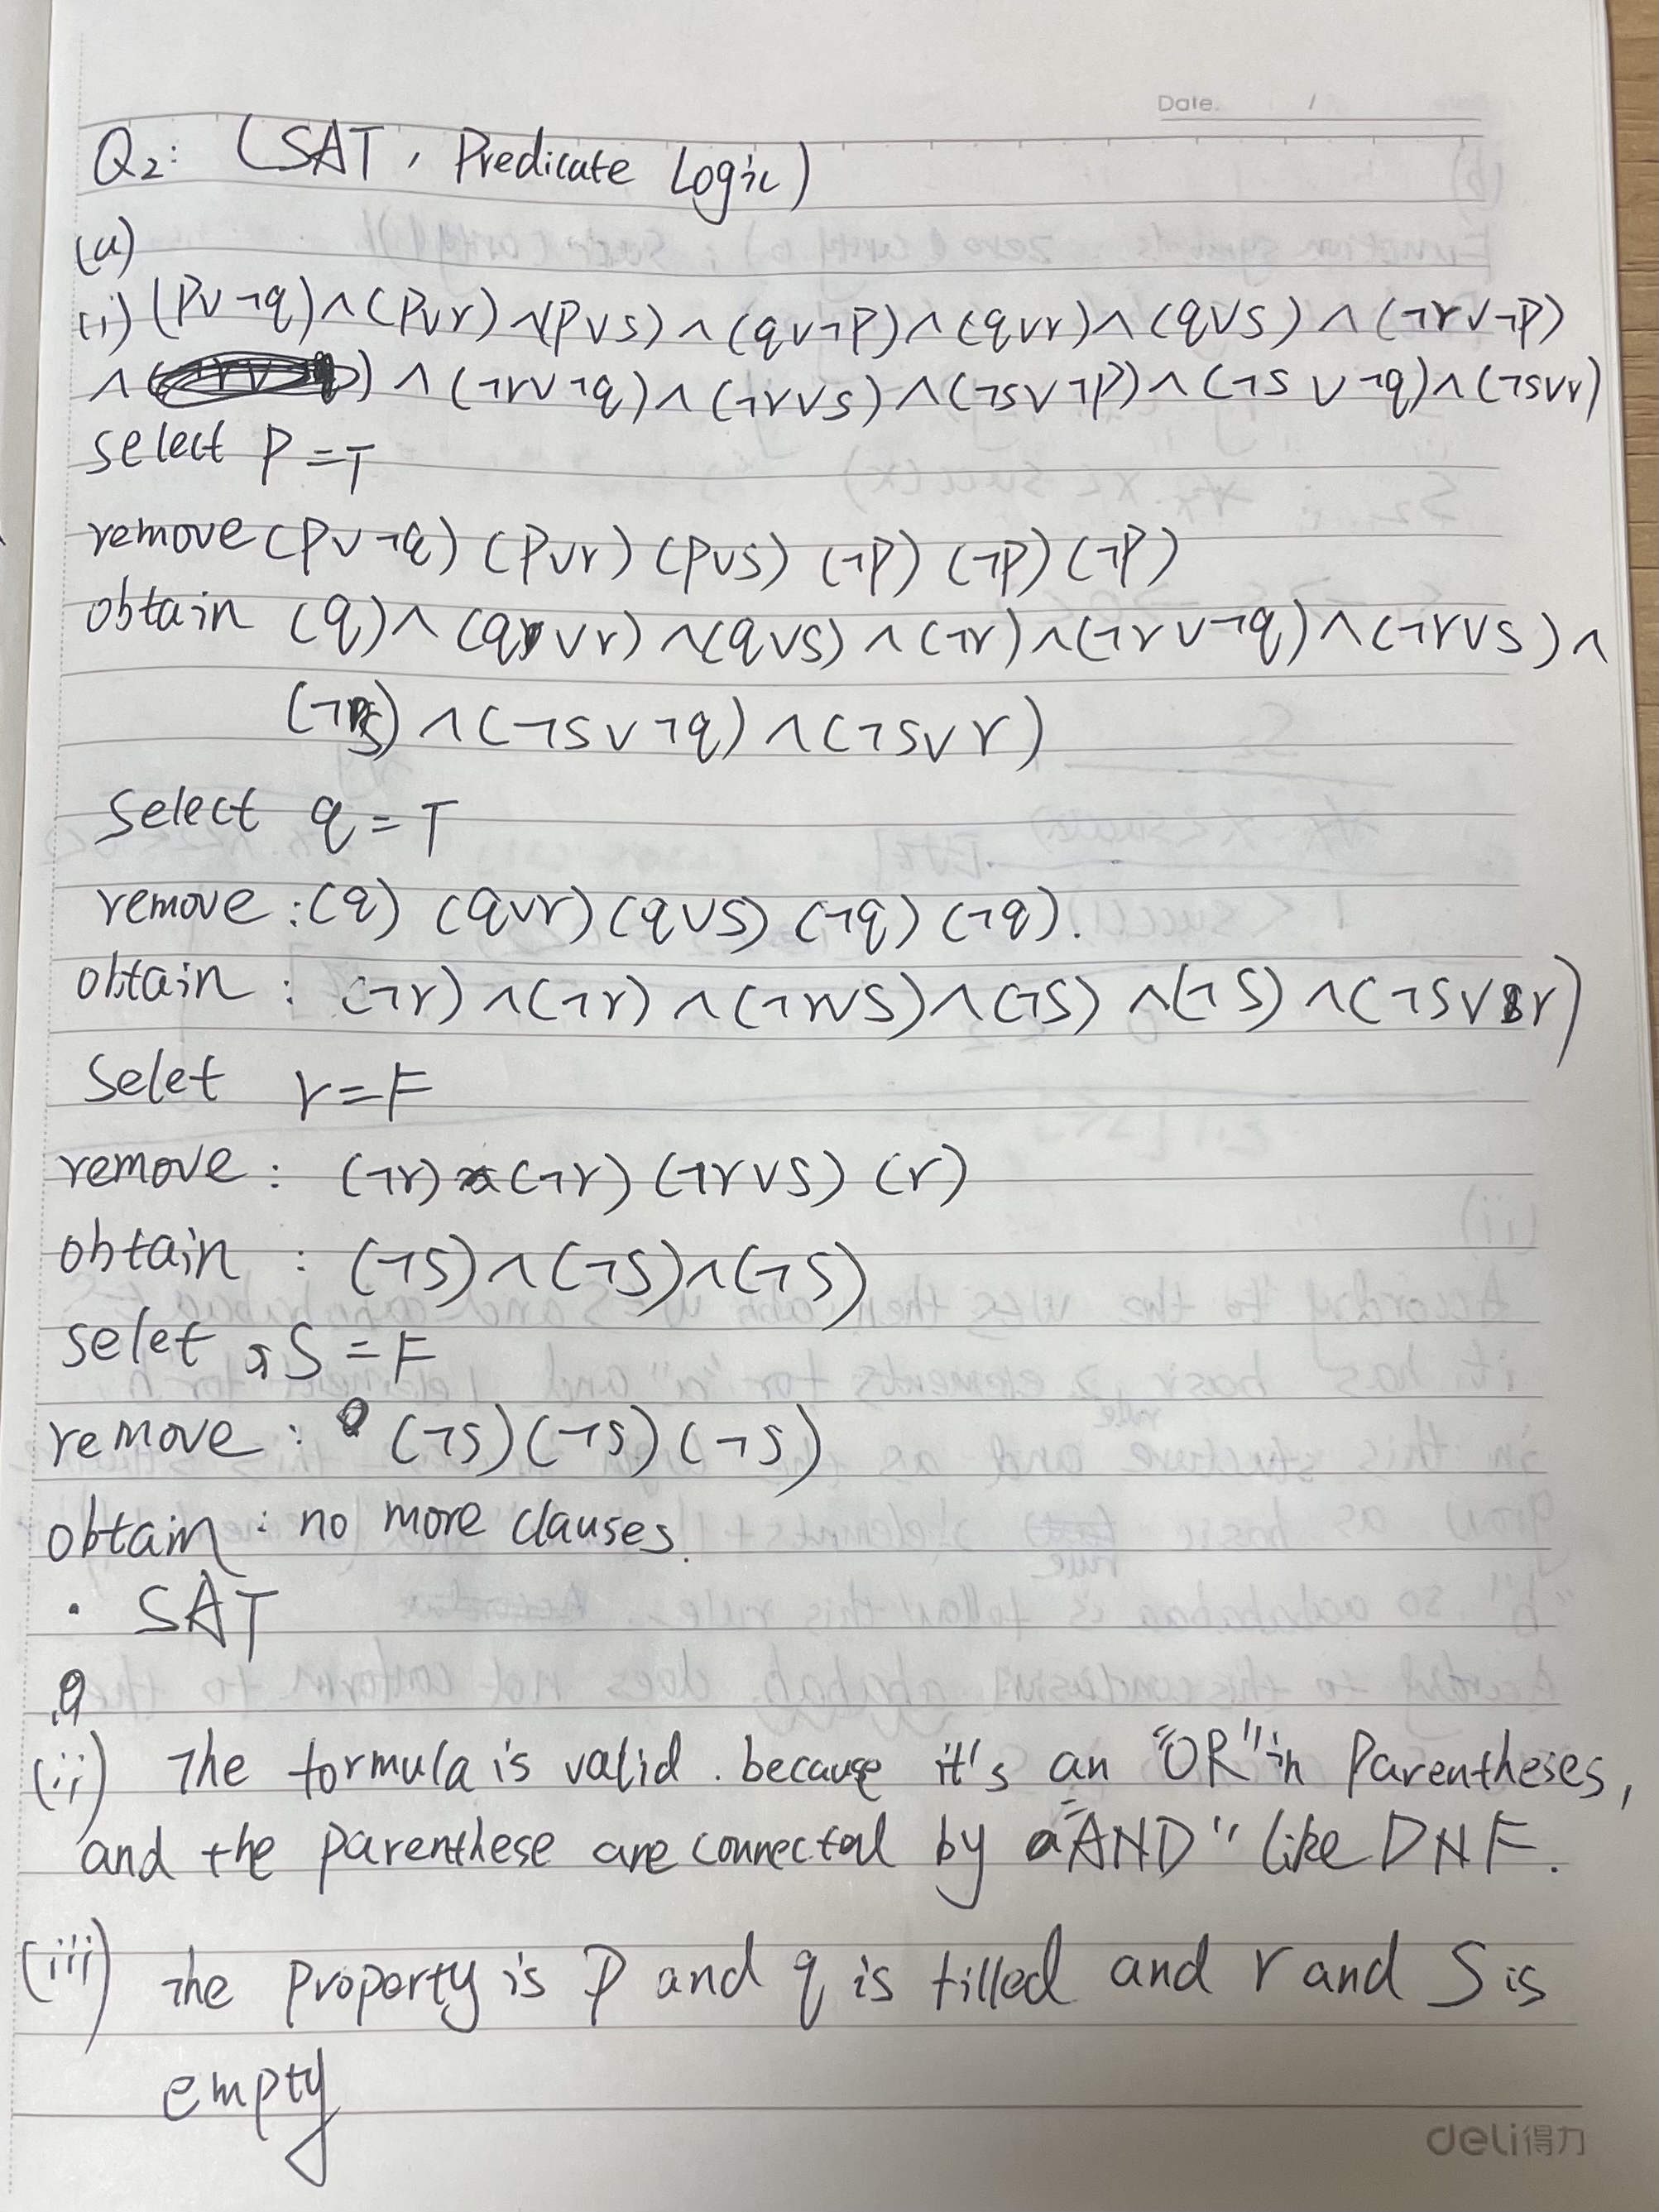 Date. /
Q2: (SAT, Predicate Logic)
(a)
(i) (P∨¬q)∧(P∨r)∧(P∨S)∧(q∨¬P)∧(q∨r)∧(q∨S)∧(¬r∨¬P)
∧ ∧(¬r∨¬q)∧(¬r∨S)∧(¬S∨¬P)∧(¬S∨¬q)∧(¬S∨r)
select P=T
remove (P∨¬q) (P∨r) (P∨S) (¬P) (¬P) (¬P)
obtain (q)∧(q∨r)∧(q∨S)∧(¬r)∧(¬r∨¬q)∧(¬r∨S)∧
(¬S)∧(¬S∨¬q)∧(¬S∨r)
Select q=T
remove: (q) (q∨r) (q∨S) (¬q) (¬q).
obtain: (¬r)∧(¬r)∧(¬r∨S)∧(¬S)∧(¬S)∧(¬S∨r)
Selet r=F
remove: (¬r) (¬r) (¬r∨S) (r)
obtain: (¬S)∧(¬S)∧(¬S)
selet S=F
remove: (¬S) (¬S) (¬S)
obtain: no more clauses.
· SAT
(ii) The formula is valid. because it's an "OR" in Parentheses,
and the parenthese are connectal by a "AND" like DNF.
(iii) The property is P and q is filled and r and S is
empty
deli得力